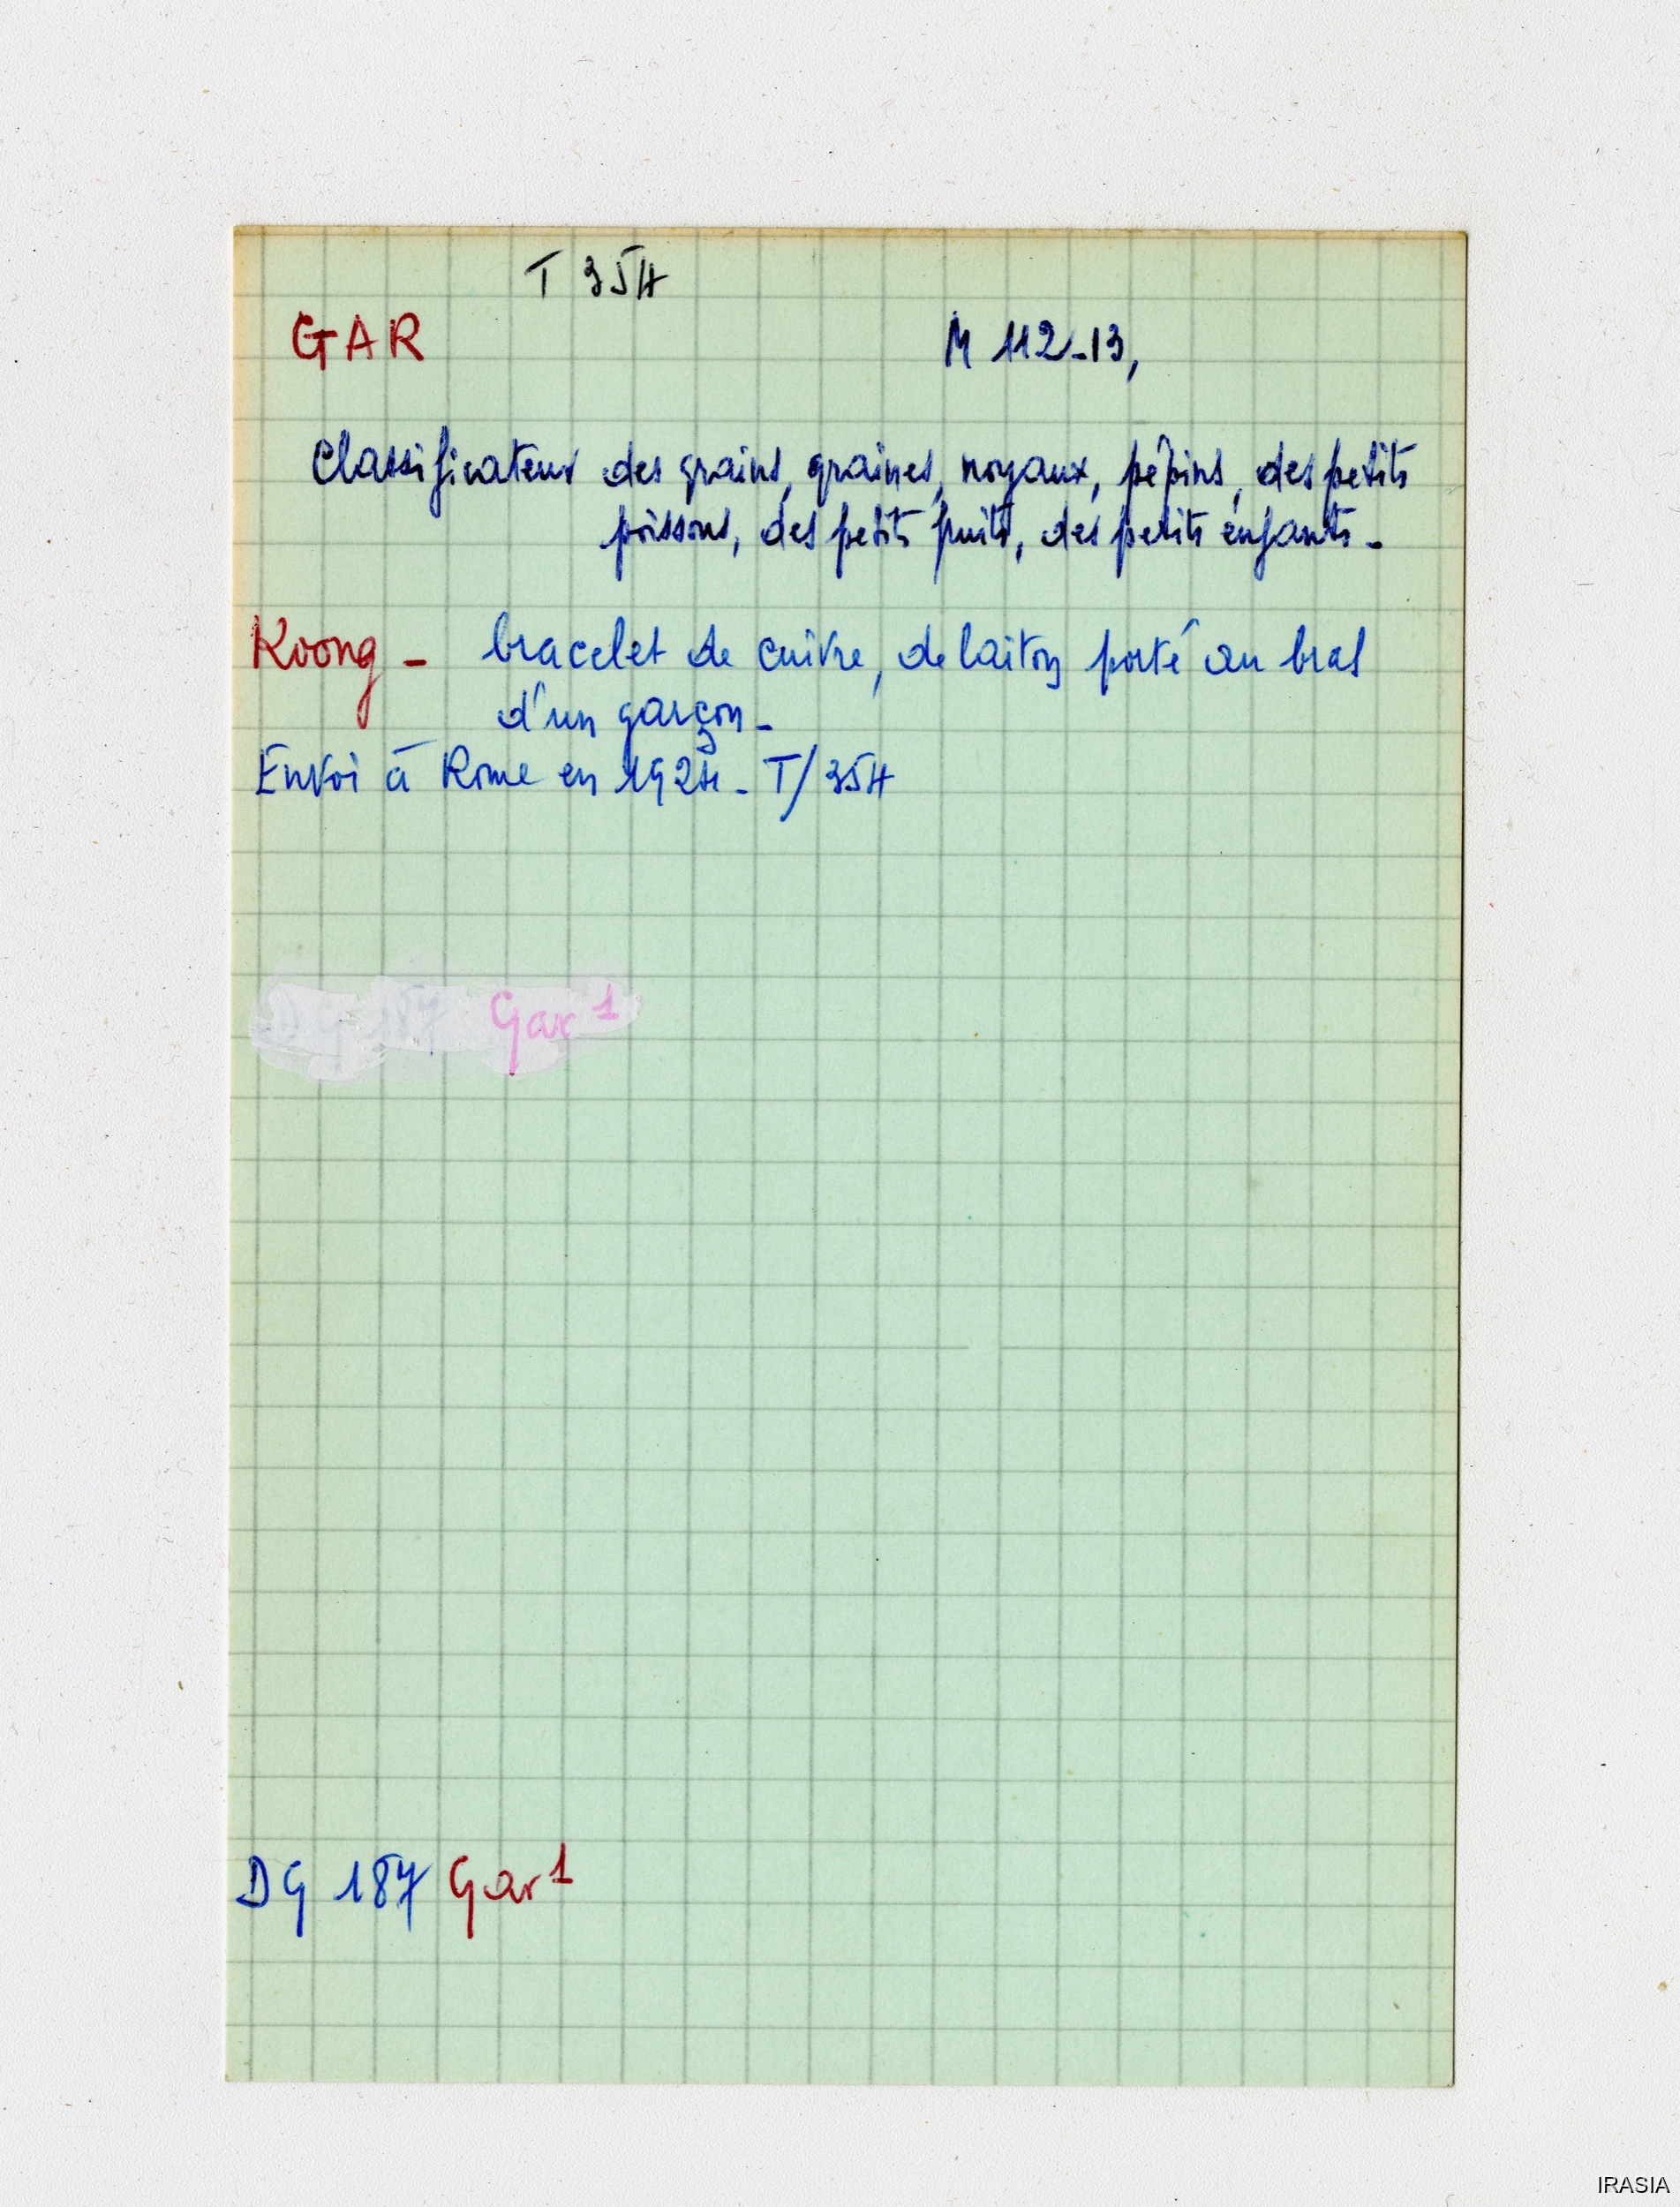 T 354
GAR M 112-13,
Classificateur des grains, graines, noyaux, pépins, des petits
poissons, des petits fruits, des petits enfants -
Koong - bracelet de cuivre, de laiton porté au bras
d'un garçon -
Envoi à Rome en 1924 - T/354
DG 187 Gar 1
DG 187 Gar 1
IRASIA